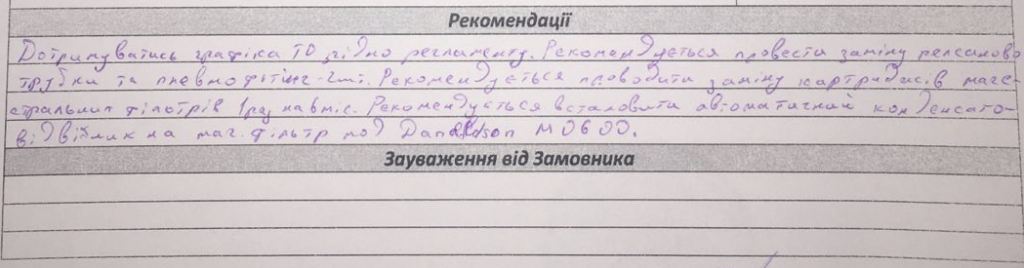 Рекомендації
Дотримуватись графіка ТО згідно регламенту. Рекомендується провести заміну
трубки та пневмофітінг-2шт. Рекомендується проводити заміну картриджів магі-
стральних фільтрів 1раз на 6міс. Рекомендується встановити автоматичний конденсато-
відвідник на маг. фільтр мод Danaldson M0600.
Зауваження від Замовника